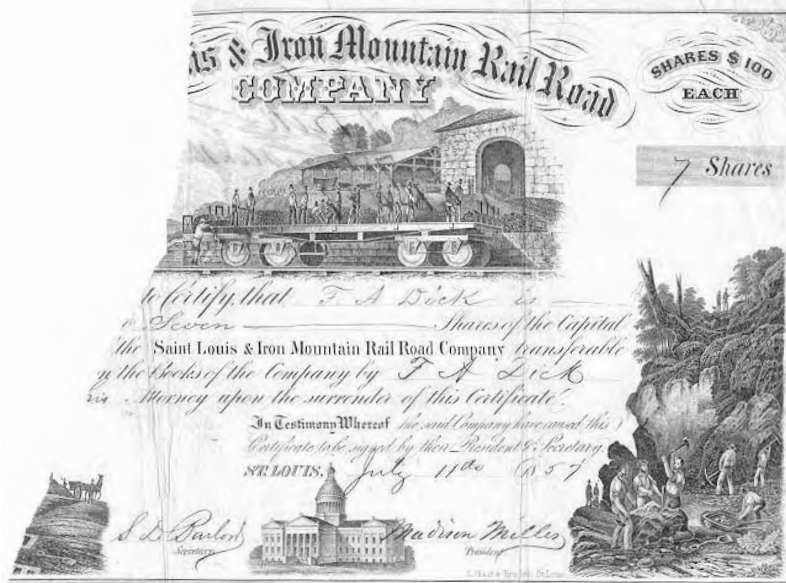 is & Iron Mountain Rail Road
COMPANY
SHARES $100
EACH
7 Shares
to Certify, that F A Dick is
Seven Shares of the Capital
the Saint Louis & Iron Mountain Rail Road Company transferable
n the Books of the Company by F A Dick
Attorney upon the surrender of this Certificate
In Testimony Whereof the said Company have caused this
Certificate to be signed by their President & Secretary.
ST. LOUIS, July 11th 1857
S D Barlow Madison Miller
Secretary President